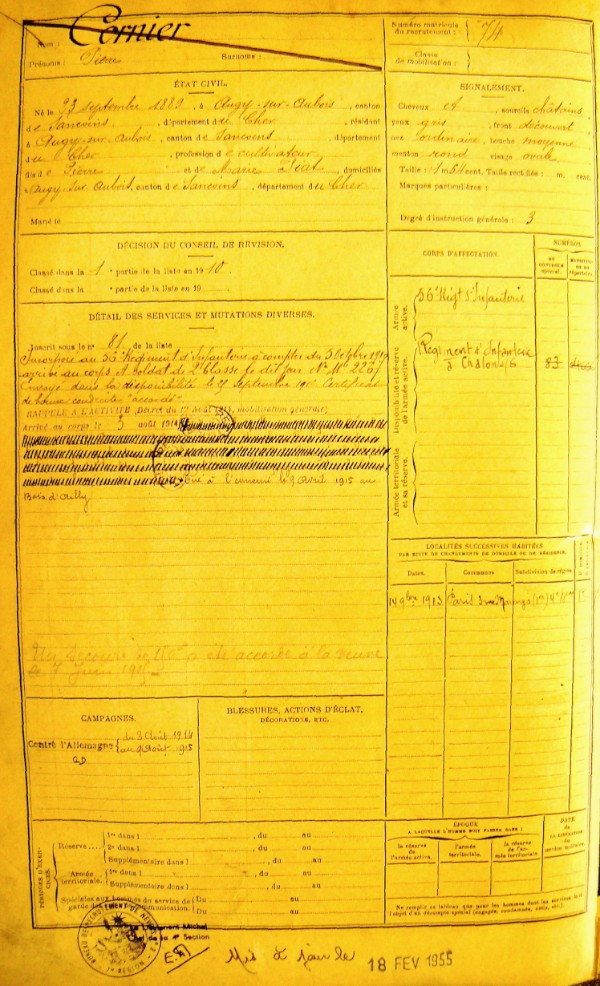 Cornier
Nom :
Prénoms : Pierre Surnoms :
Numéro matricule
du recrutement : 74
Classe
de mobilisation :
ÉTAT CIVIL.
Né le 23 septembre 1889, à Augy-sur-Aubois, canton
de Sancoins, département du Cher, résidant
à Augy-sur-Aubois, canton de Sancoins, département
du Cher, profession de cultivateur
fils de Pierre et de Marie, domiciliés
à Augy-sur-Aubois, canton de Sancoins, département du Cher
Marié le
SIGNALEMENT.
Cheveux et sourcils châtains,
yeux gris, front découvert
nez ordinaire, bouche moyenne
menton rond visage ovale
Taille : 1 m. cent. Taille rectifiée : m. cent.
Marques particulières :
Degré d'instruction générale : 3
DÉCISION DU CONSEIL DE RÉVISION.
Classé dans la 1e partie de la liste en 1910.
Classé dans la e partie de la liste en 19
CORPS D'AFFECTATION.
NUMÉROS
Armée
active.
56e Régt d'Infanterie
Disponibilité et réserve
de l'armée active.
Régiment d'Infanterie
à Chalon s/s 83
Armée territoriale
et sa réserve.
DÉTAIL DES SERVICES ET MUTATIONS DIVERSES.
Inscrit sous le n° 81 de la liste
Incorporé au 56e Régiment d'Infanterie à compter du 3 Octobre
arrivé au corps et soldat de 2e classe le dit jour. N° Mle
Envoyé dans la disponibilité le 27 Septembre Certificat
de bonne conduite "accordé"
RAPPELÉ À L'ACTIVITÉ (Décret du 1er août 1914, mobilisation générale)
Arrivé au corps le 3 août 1914
Tué à l'ennemi le 9 Avril 1915 au
Bois d'Ailly
Un secours de a été accordé à la veuve
le 7 Juin
LOCALITÉS SUCCESSIVES HABITÉES
PAR SUITE DE CHANGEMENTS DE DOMICILE OU DE RÉSIDENCE.
Dates. Communes Subdivisions de région.
14 9bre 1913 Paris 3 rue
CAMPAGNES.
Contre l'Allemagne
du 3 Août 1914
au 9 Août 1915
CD
BLESSURES, ACTIONS D'ÉCLAT,
DÉCORATIONS, ETC.
PÉRIODES D'EXERCICES.
Réserve
1re dans l , du au
2e dans l , du au
Supplémentaire dans l , du au
Armée
territoriale.
1re dans l , du au
Supplémentaire dans l , du au
Spéciales aux hommes du service de
garde des voies de communication.
Du au
Du au
ÉPOQUE
À LAQUELLE L'HOMME DOIT PASSER DANS :
la réserve
de l'armée active.
l'armée
territoriale.
la réserve
de l'armée territoriale.
DATE
de
LA LIBÉRATION
du
service militaire.
Le Lieutenant Michel
Chef de la 4e Section
Mis à jour le 18 FEV 1955